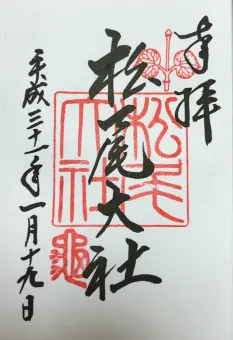 奉拝
松尾大社
松尾大社
平成三十一年一月十九日